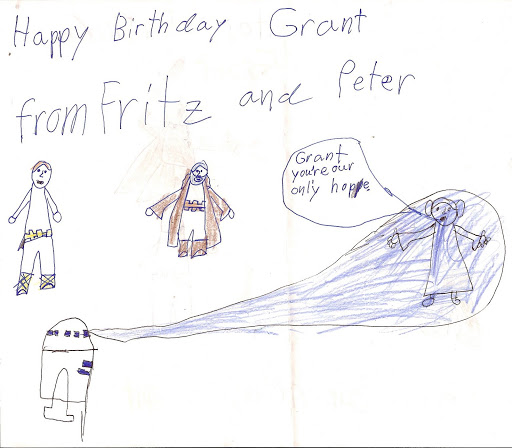 Happy Birthday Grant
from Fritz and Peter
Grant
you're our
only hoppe